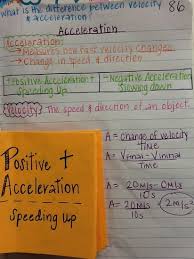 What is the difference between velocity
& acceleration
86
Acceleration
Acceleration:
→ Measures how fast velocity changes
→ Change in speed & direction
- Positive Acceleration +
Speeding Up
- Negative Acceleration
Slowing down
Velocity: The speed & direction of an object.
Positive +
Acceleration
Speeding Up
A = Change of velocity
Time
A =
Time
A = 20m/s - 0m/s
10s
A = 20m/s
10s
2m/s²